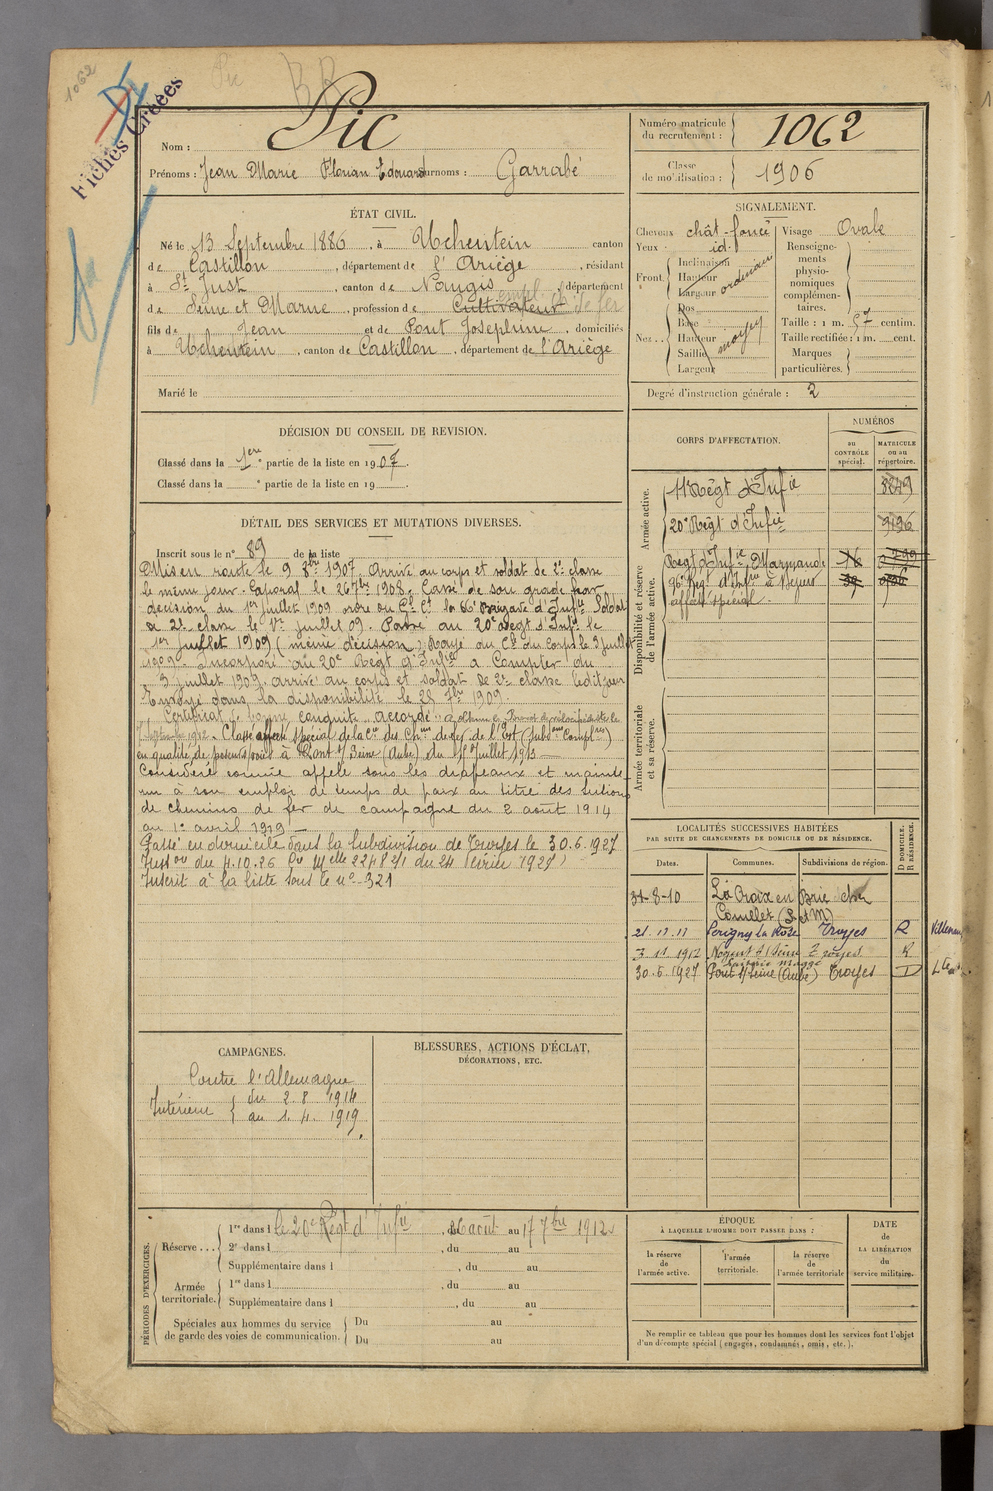 1062
Pic
Fiches Créées
Nom : Pic
Prénoms : Jean Marie Florian Edouard Surnoms : Garrabé
Numéro matricule du recrutement : 1062
Classe de mobilisation : 1906
ÉTAT CIVIL.
Né le 13 Septembre 1886, à Uchentein canton
de Castillon, département de l'Ariège, résidant
à St Just, canton de Nangis, département
de Seine et Marne, profession de Cultivateur empl. ch. de fer
fils de Jean et de Pont Josephine, domiciliés
à Uchentein, canton de Castillon, département de l'Ariège
Marié le
SIGNALEMENT.
Cheveux chât-foncé
Yeux id.
Front Inclinaison Hauteur Largeur ordinaire
Nez Dos Base Hauteur Saillie Largeur moyen
Visage Ovale
Renseignements physionomiques complémentaires.
Taille : 1 m. 57 centim.
Taille rectifiée : 1 m. cent.
Marques particulières.
Degré d'instruction générale : 2
DÉCISION DU CONSEIL DE REVISION.
Classé dans la 1ère partie de la liste en 1907.
Classé dans la e partie de la liste en 19 .
DÉTAIL DES SERVICES ET MUTATIONS DIVERSES.
Inscrit sous le n° 89 de la liste
Mis en route le 9 8bre 1907. Arrivé au corps et soldat de 2e classe
le même jour. Caporal le 26 7bre 1908. Cassé de son grade par
décision du 1er juillet 1909 ordre du Gl Ct la 66e Brigade d'Infie Soldat
de 2e classe le 1er juillet 09. Passé au 20e Régt d'Infie le
1er juillet 1909 (même décision) Rayé au Cle du corps le 3 juillet
1909. Incorporé au 20e Régt d'Infie à compter du
3 juillet 1909. arrivé au corps et soldat de 2e classe ledit jour
Envoyé dans la disponibilité le 25 7bre 1909
Certificat de bonne conduite accordé.
Classé affecté spécial de la Cie des Chins de fer de l'Est (Subdon Complre)
en qualité de poseur voies à Pont s/ Seine (Aube) du 15 juillet 1913
Considéré comme appelé sous les drapeaux et mainte-
nu à son emploi de temps de paix au titre des sections
de chemins de fer de campagne du 2 août 1914
au 1er avril 1919
Passé en domicile dans la Subdivision de Troyes le 30.6.1927
Inston du 4.10.26 Cre Mlle 22482/1 du 24 février 1927)
Inscrit à la liste sous le n° 321
CORPS D'AFFECTATION.
NUMÉROS
au CONTRÔLE spécial.
MATRICULE ou au répertoire.
Armée active.
11e Régt d'Infie
20e Régt d'Infie 9196
Disponibilité et réserve de l'armée active.
Régt d'Infie Marmande 16
96e Régt d'Infie à Béziers
affecté spécial
Armée territoriale et sa réserve.
LOCALITÉS SUCCESSIVES HABITÉES
PAR SUITE DE CHANGEMENTS DE DOMICILE OU DE RÉSIDENCE.
Dates.
Communes.
Subdivisions de région.
D DOMICILE. R RÉSIDENCE.
31-8-10 La Croix en Brie chez
Comellet (S et M)
21.12.11 Périgny la Rose Troyes R
3.11.1912 Nogent s/ Seine Troyes R
30.6.1927 Pont s/ Seine (Aube) Troyes D
CAMPAGNES.
Contre l'Allemagne
Intérieur du 2. 8. 1914
au 1. 4. 1919
BLESSURES, ACTIONS D'ÉCLAT,
DÉCORATIONS, ETC.
PÉRIODES D'EXERCICES.
Réserve
1re dans l le 20e Régt d'Infie, du 26 août au 17 7bre 1912
2e dans l , du au
Supplémentaire dans l , du au
Armée territoriale.
1re dans l , du au
Supplémentaire dans l , du au
Spéciales aux hommes du service de garde des voies de communication.
Du au
Du au
ÉPOQUE
À LAQUELLE L'HOMME DOIT PASSER DANS :
la réserve de l'armée active.
l'armée territoriale.
la réserve de l'armée territoriale
DATE de LA LIBÉRATION du service militaire.
Ne remplir ce tableau que pour les hommes dont les services font l'objet
d'un décompte spécial (engagés, condamnés, omis, etc.).